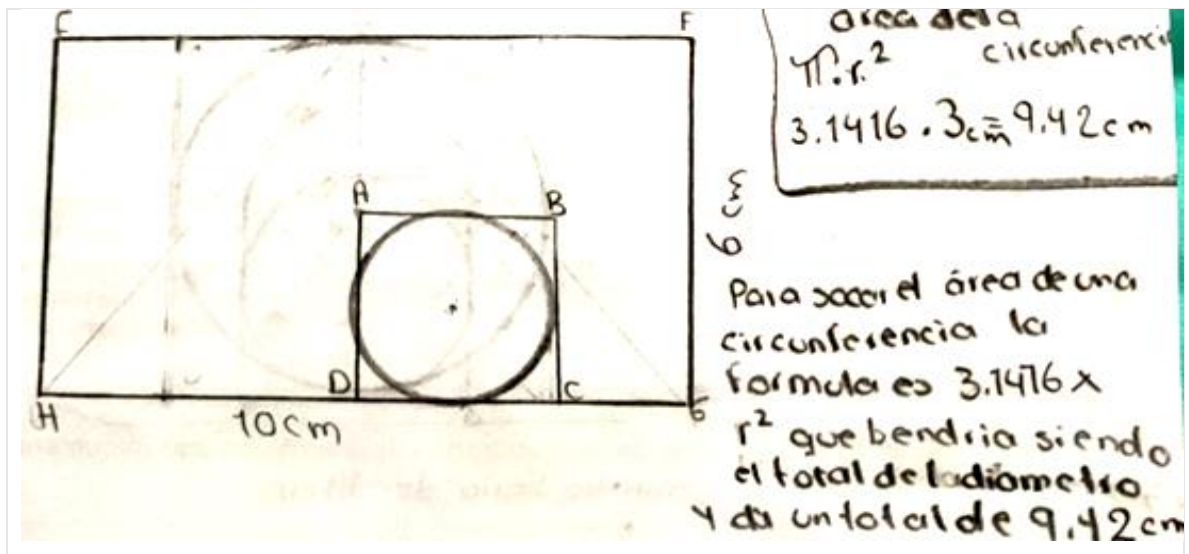 E F
A B
D C
H G
10cm
6 cm
área de la
circunferencia
π.r.²
3.1416 . 3cm = 9.42cm
Para sacar el área de una
circunferencia la
formula es 3.1416 x
r² que bendria siendo
el total del diametro
Y da un total de 9.42cm